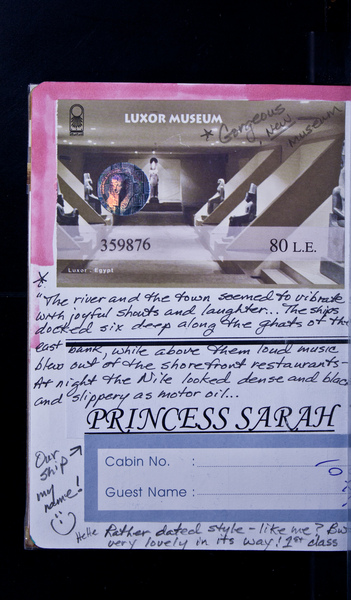 LUXOR MUSEUM
* Gorgeous
New
museum
359876
80 L.E.
Luxor - Egypt
*
"The river and the town seemed to vibrate
with joyful shouts and laughter... The ships
docked six deep along the ghats of the
east bank, while above them loud music
blew out of the shorefront restaurants-
At night the Nile looked dense and blac
and slippery as motor oil...
PRINCESS SARAH
Our
ship
my
name!
Cabin No. :
Guest Name :
HeHe Rather dated style - like me? Bu
very lovely in its way! 1st class